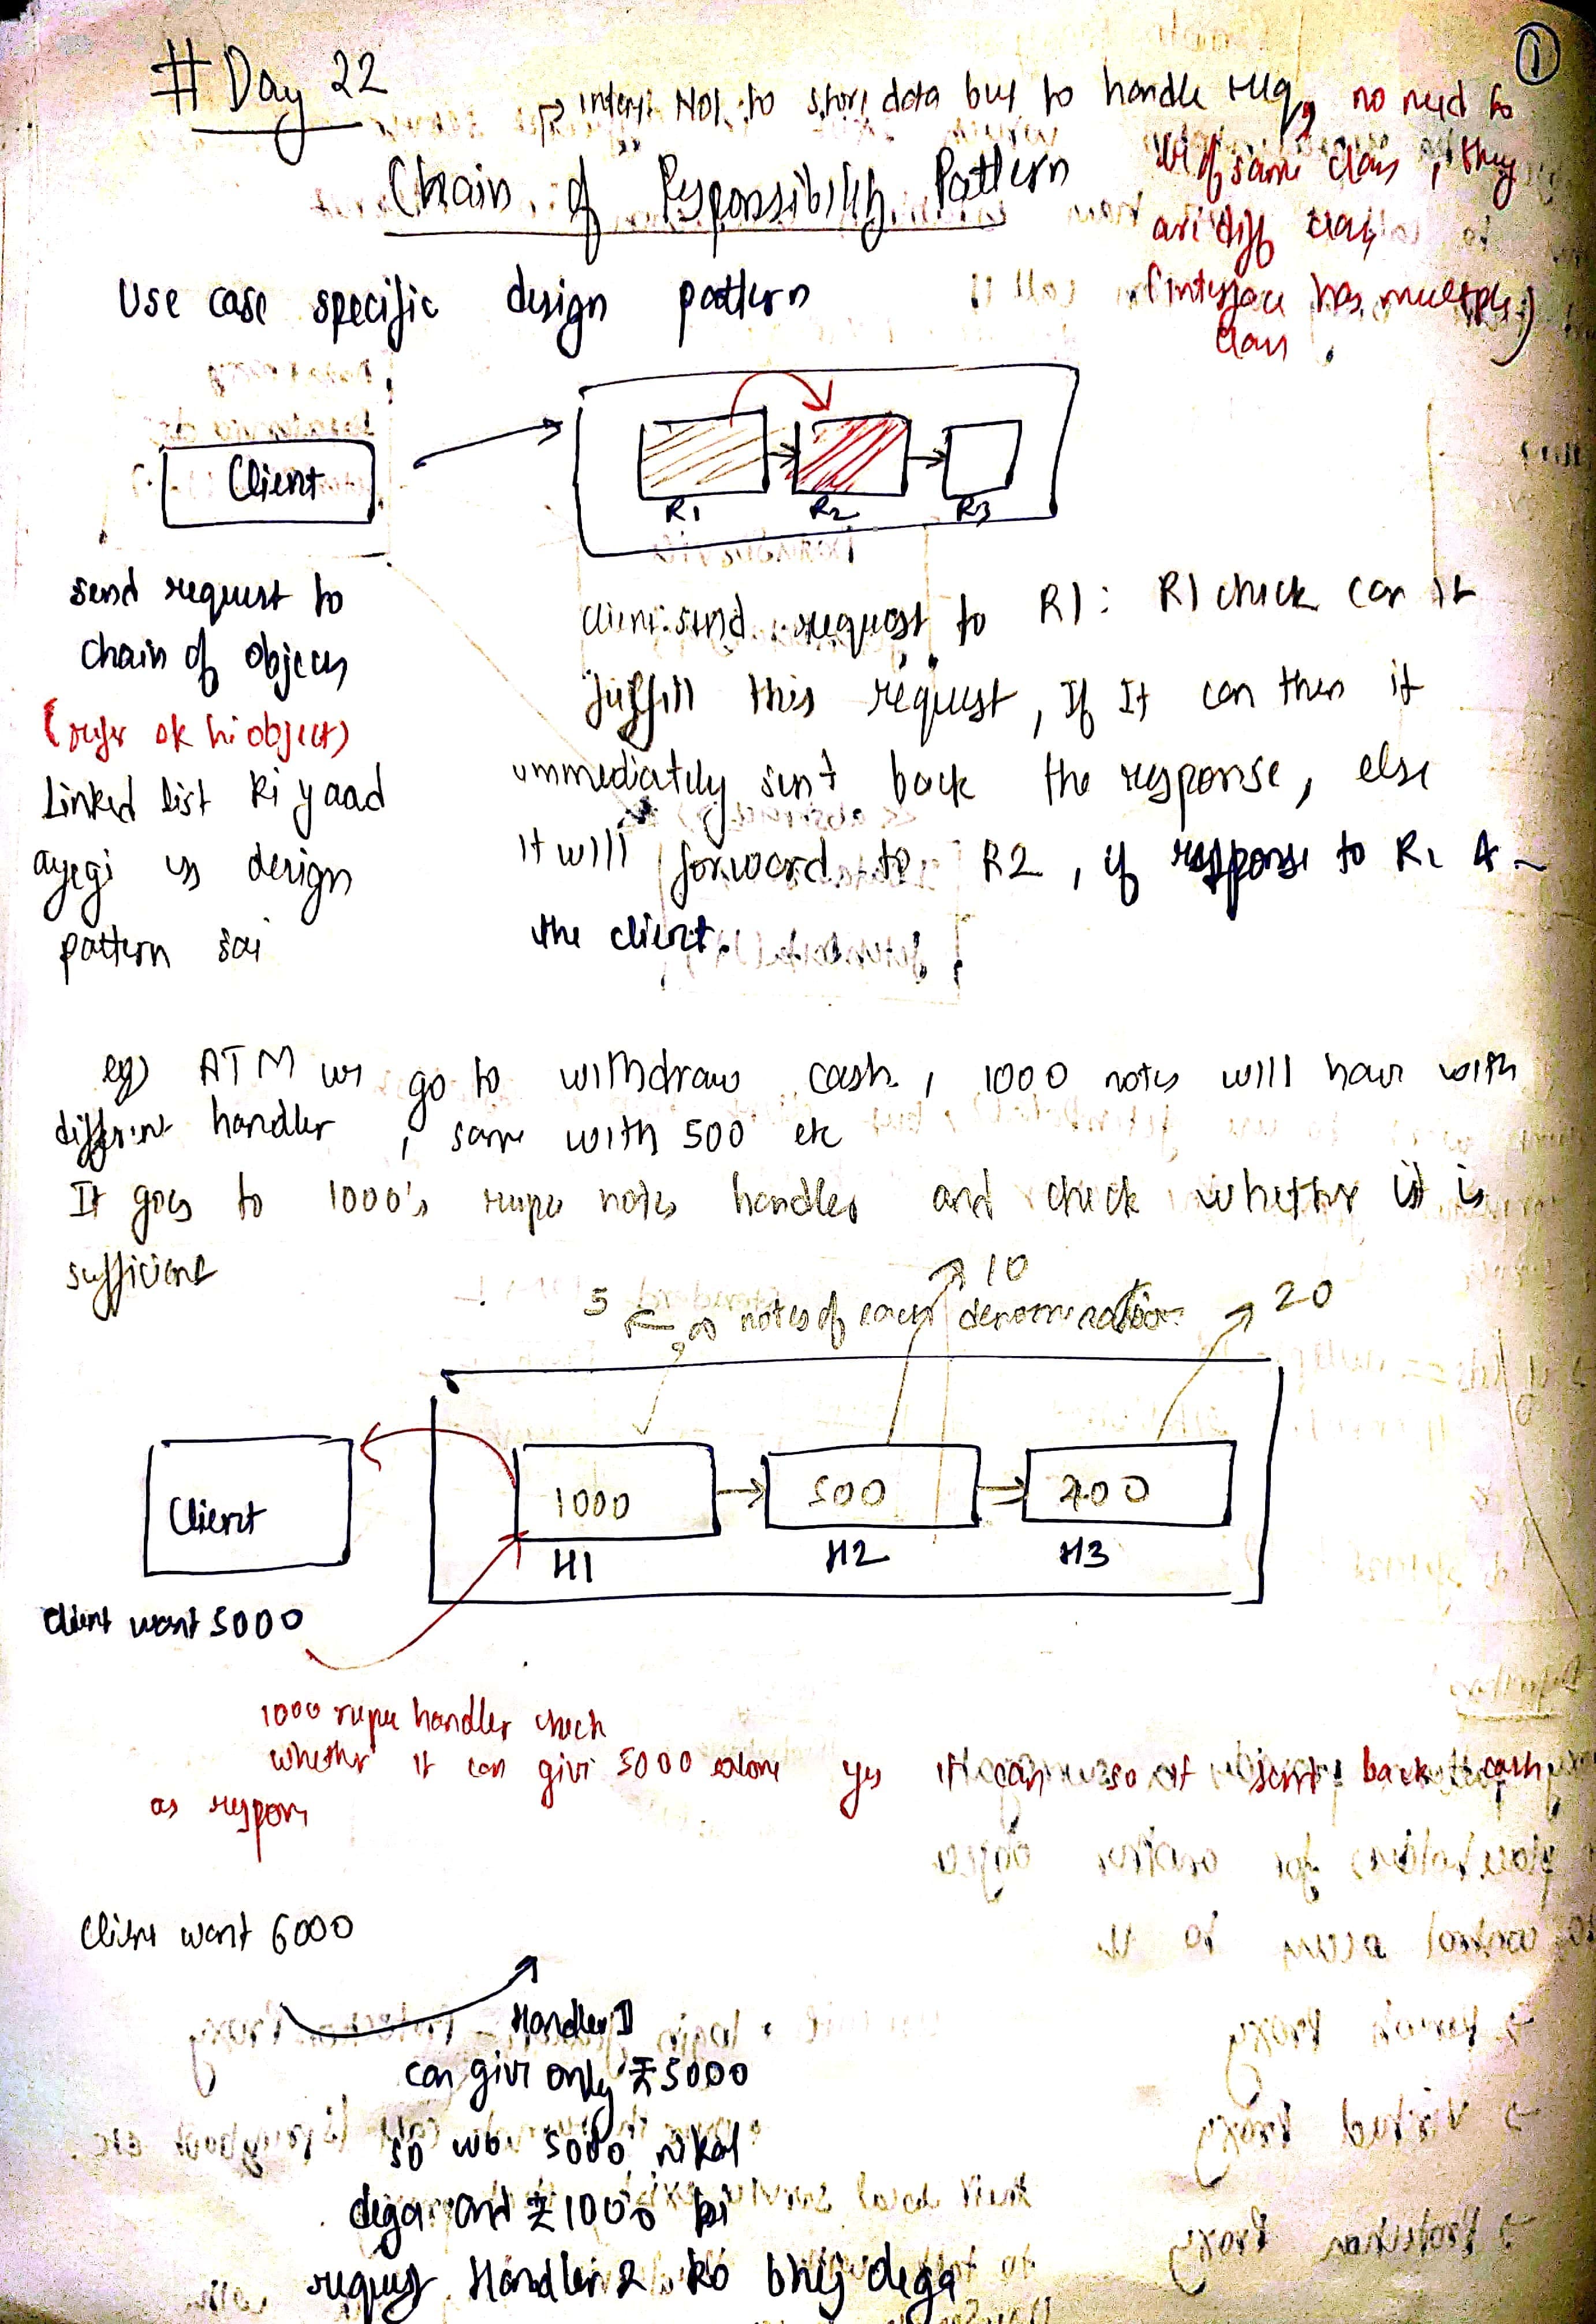 ①
# Day 22
→ intent NOT to store data but to handle req, no need to
be of same class, they
are diff class
(interface has multiple)
class
Chain of Responsibility Pattern
Use case specific design pattern
Client
R1 R2 R3
send request to
chain of objects
(refer ek hi object)
Linked list ki yaad
ayegi is design
pattern sai
client send request to R1: R1 check can it
fulfill this request, If It can then it
immediately sent back the response, else
it will forward to R2, if response to R1 &
the client.
eg) ATM we go to withdraw cash, 1000 notes will have with
different handler, same with 500 etc
It goes to 1000's rupee notes handler and check whether it is
sufficient
5 ← notes of each denomination 10 20
Client
1000 500 200
H1 H2 H3
Client want 5000
1000 rupee handler check
whether it can give 5000 alone yes it can so it sent back cash
as respons
Client want 6000
Handler 1
can give only ₹5000
so wo 5000 nikal
dega and ₹1000 ki
request Handler 2 ko bhej dega